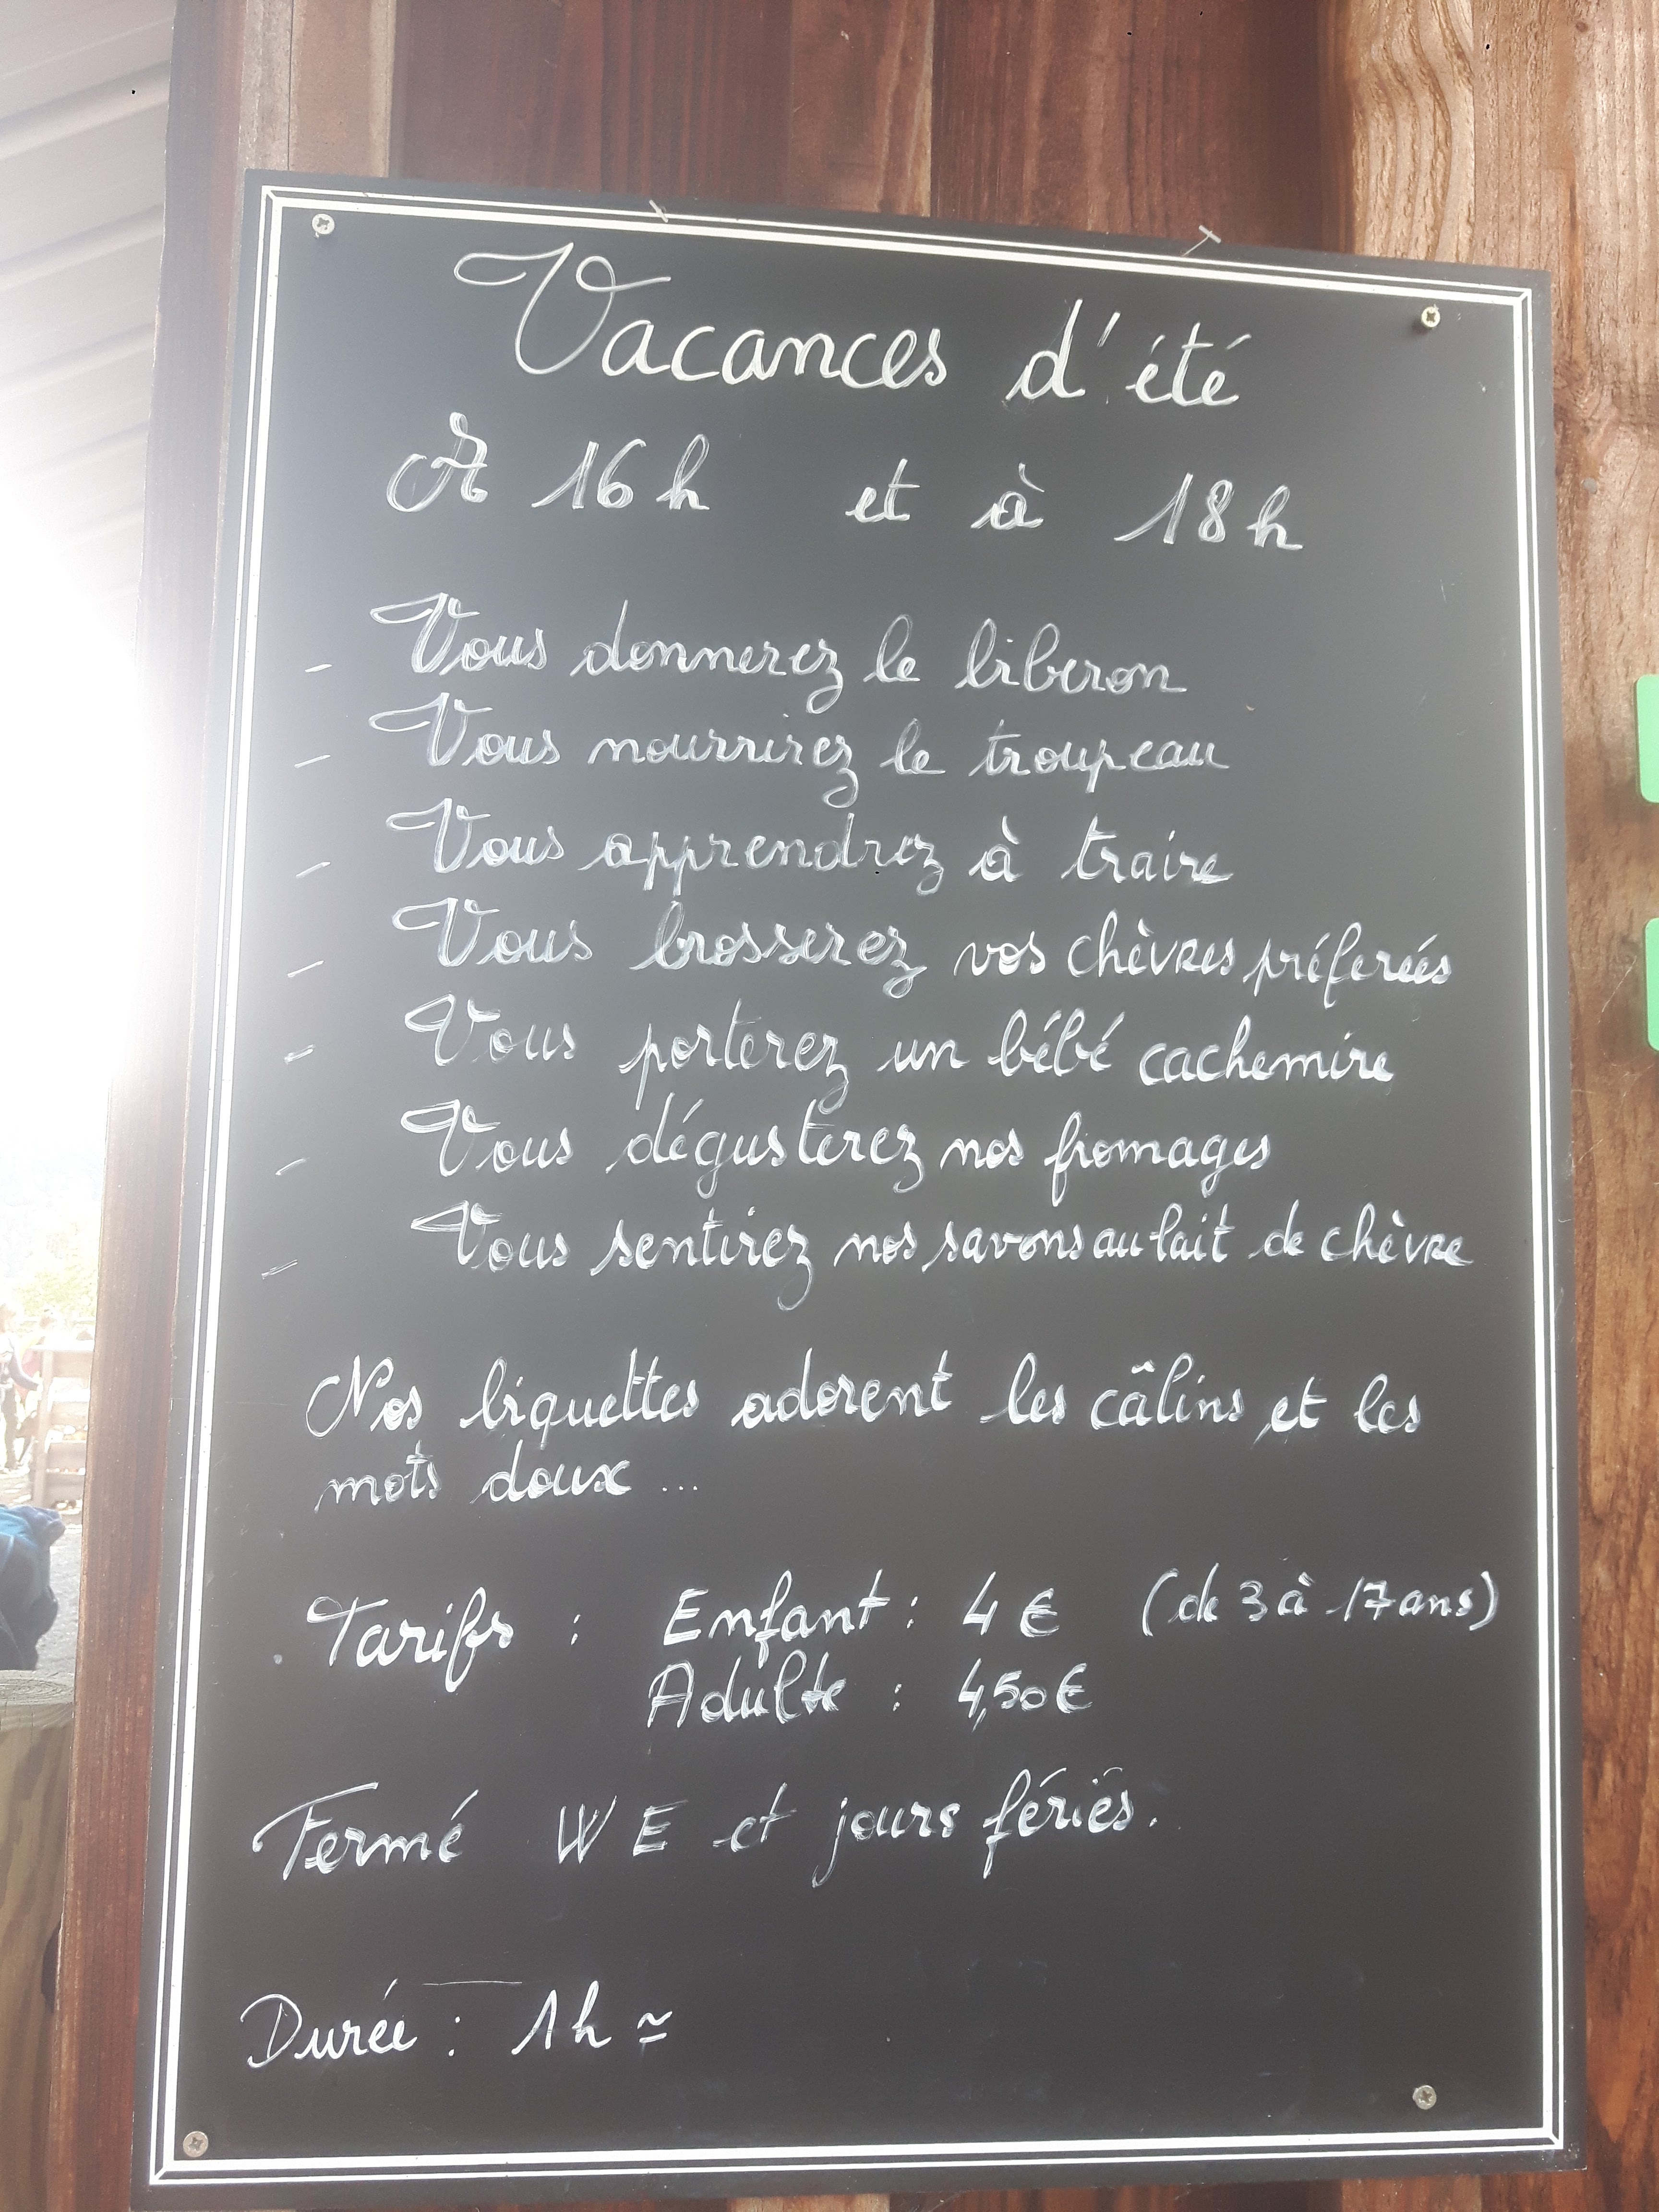 Vacances d'été
A 16h et à 18h
- Vous donnerez le biberon
- Vous nourrirez le troupeau
- Vous apprendrez à traire
- Vous brosserez vos chèvres préferées
- Vous porterez un bébé cachemire
- Vous dégusterez nos fromages
- Vous sentirez nos savons au lait de chèvre
Nos biquettes adorent les câlins et les
mots doux ...
Tarifs : Enfant : 4 € (de 3 à 17 ans)
Adulte : 4,50 €
Fermé WE et jours fériés.
Durée : 1h ≃